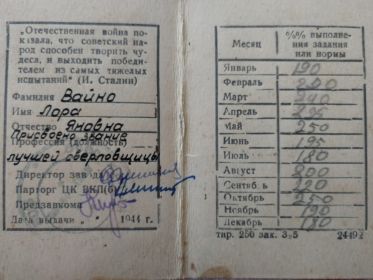 „Отечественная война по-
казала, что советский на-
род способен творить чу-
деса, и выходить победи-
телем из самых тяжелых
испытаний“ (И. Сталин)
Фамилия Вайно
Имя Лора
Отчество Яновна
Присвоено звание
Профессия (должность)
лучшей сверловщицы
Директор завода
Парторг ЦК ВКП(б)
Предзавкома
Дата выдачи 1944 г.
Месяц %% выполне-
ния задания
или нормы
Январь 190
Февраль 200
Март 240
Апрель
Май 250
Июнь 195
Июль 180
Август 200
Сентябрь 220
Октябрь 250
Ноябрь 190
Декабрь 180
тир. 250 зак. 24492